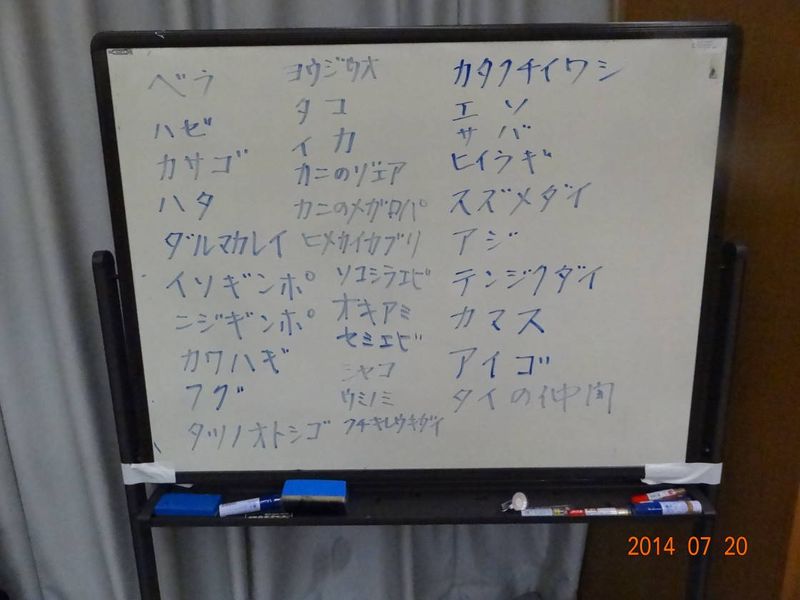 ベラ
ハゼ
カサゴ
ハタ
ダルマカレイ
イソギンポ
ニジギンポ
カワハギ
フグ
タツノオトシゴ
ヨウジウオ
タコ
イカ
カニのゾエア
カニのメガロパ
ヒメカイカブリ
ソコシラエビ
オキアミ
セミエビ
シャコ
ウミノミ
フチキレウキダイ
カタクチイワシ
エソ
サバ
ヒイラギ
スズメダイ
アジ
テンジクダイ
カマス
アイゴ
タイの仲間
2014 07 20